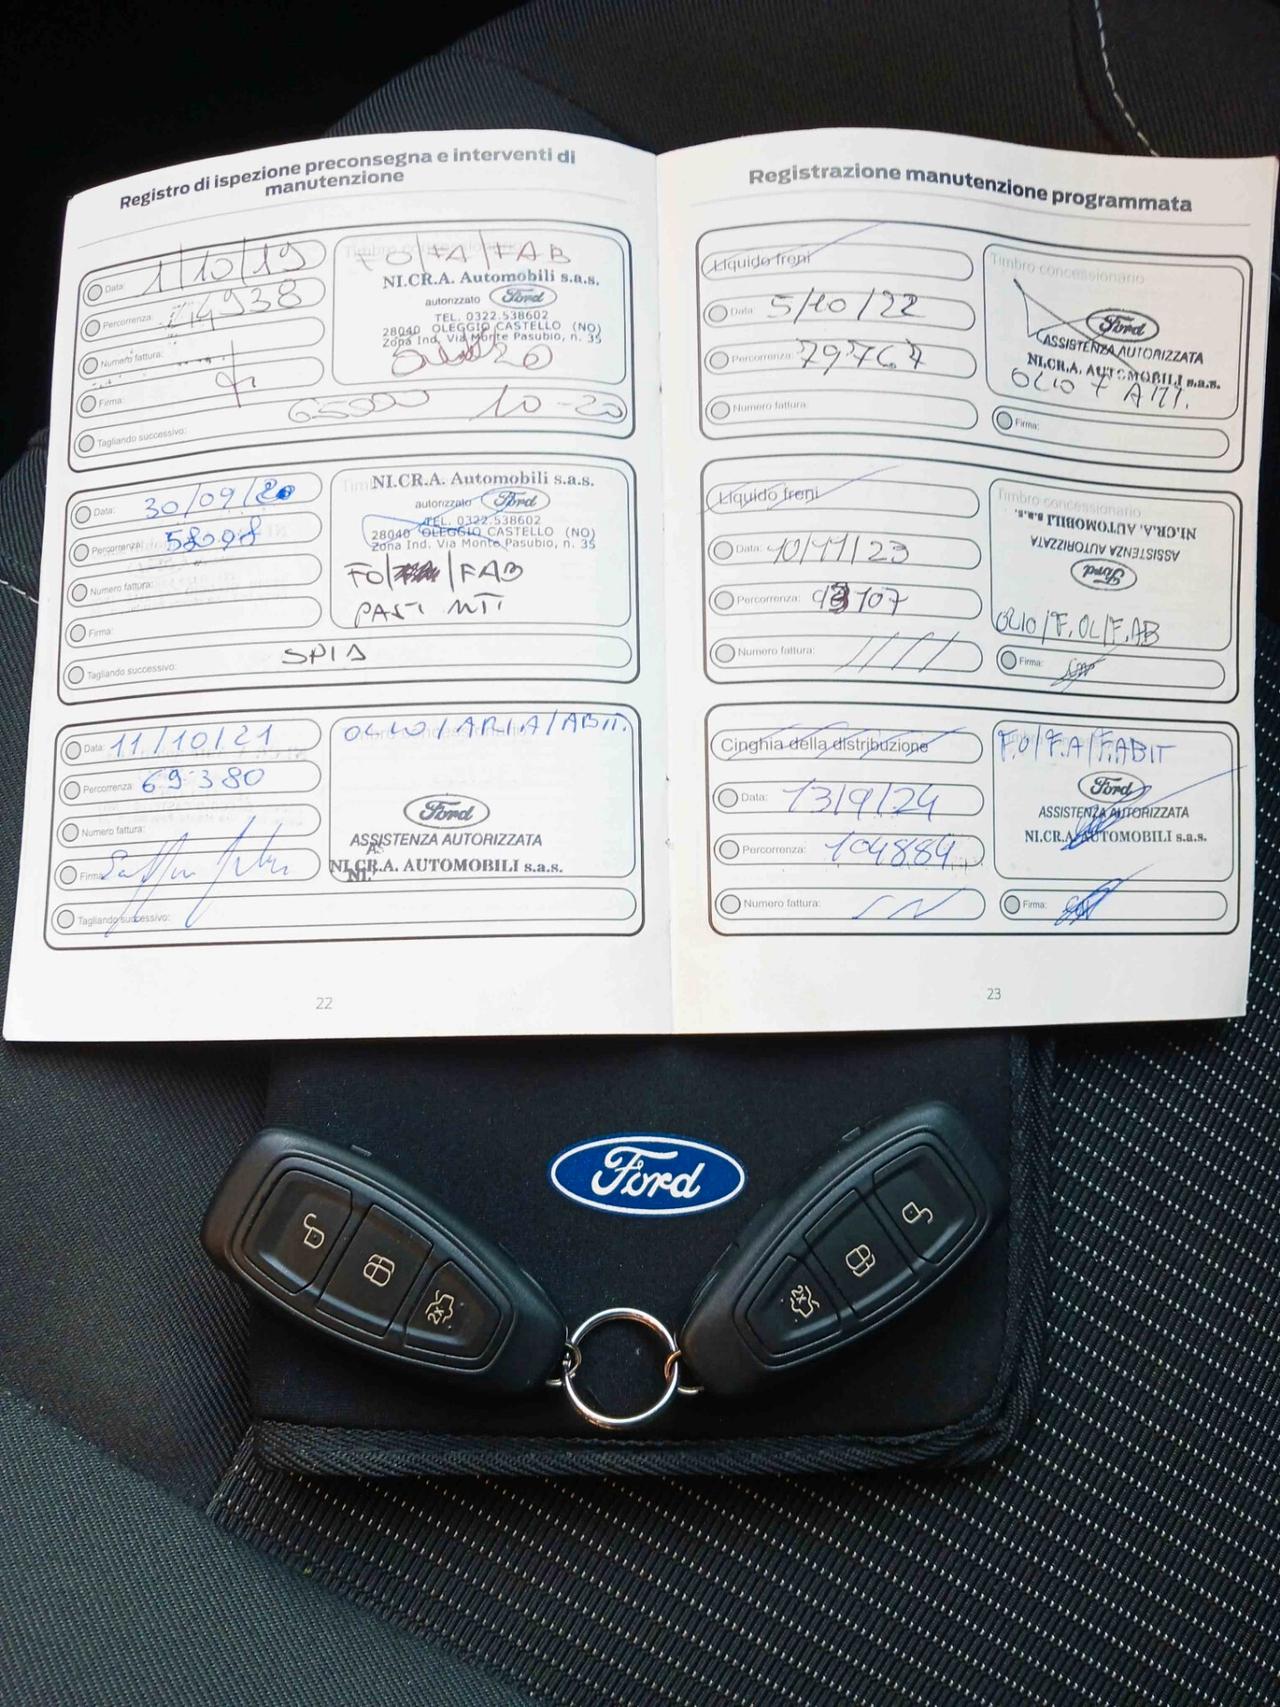 Registro di ispezione preconsegna e interventi di
manutenzione
Data: 1/10/19
Percorrenza: 44938
Numero fattura:
Firma:
Tagliando successivo: 65000 10-20
FO/FA/FAB
NI.CR.A. Automobili s.a.s.
autorizzato Ford
TEL. 0322.538602
28040 OLEGGIO CASTELLO (NO)
Zona Ind. Via Monte Pasubio, n. 35
Data: 30/09/20
Percorrenza: 58098
Numero fattura:
Firma:
Tagliando successivo: SPIA
NI.CR.A. Automobili s.a.s.
autorizzato Ford
TEL. 0322.538602
28040 OLEGGIO CASTELLO (NO)
Zona Ind. Via Monte Pasubio, n. 35
FO/ /FAB
PAST. ANT.
Data: 11/10/21
Percorrenza: 69380
Numero fattura:
Firma:
Tagliando successivo:
OLIO/ARIA/ABIT.
Ford
ASSISTENZA AUTORIZZATA
NI.CR.A. AUTOMOBILI s.a.s.
22
Registrazione manutenzione programmata
Liquido freni
Data: 5/10/22
Percorrenza: 79767
Numero fattura:
Timbro concessionario
Ford
ASSISTENZA AUTORIZZATA
NI.CR.A. AUTOMOBILI s.a.s.
OLIO F ABIT.
Firma:
Liquido freni
Data: 10/11/23
Percorrenza: 93107
Numero fattura:
Timbro concessionario
NI.CR.A. AUTOMOBILI s.a.s.
ASSISTENZA AUTORIZZATA
Ford
OLIO/F.OL/F.AB
Firma:
Cinghia della distribuzione
Data: 13/9/24
Percorrenza: 104884
Numero fattura:
F.O/F.A/F.ABIT
Ford
ASSISTENZA AUTORIZZATA
NI.CR.A. AUTOMOBILI s.a.s.
Firma:
23
Ford
2x
2x